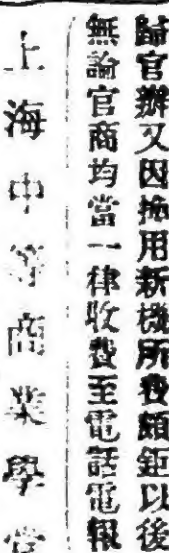 歸官辦又因換用新機所費頗鉅以後
無論官商均當一律收費至電話電報
上海中等商業學堂